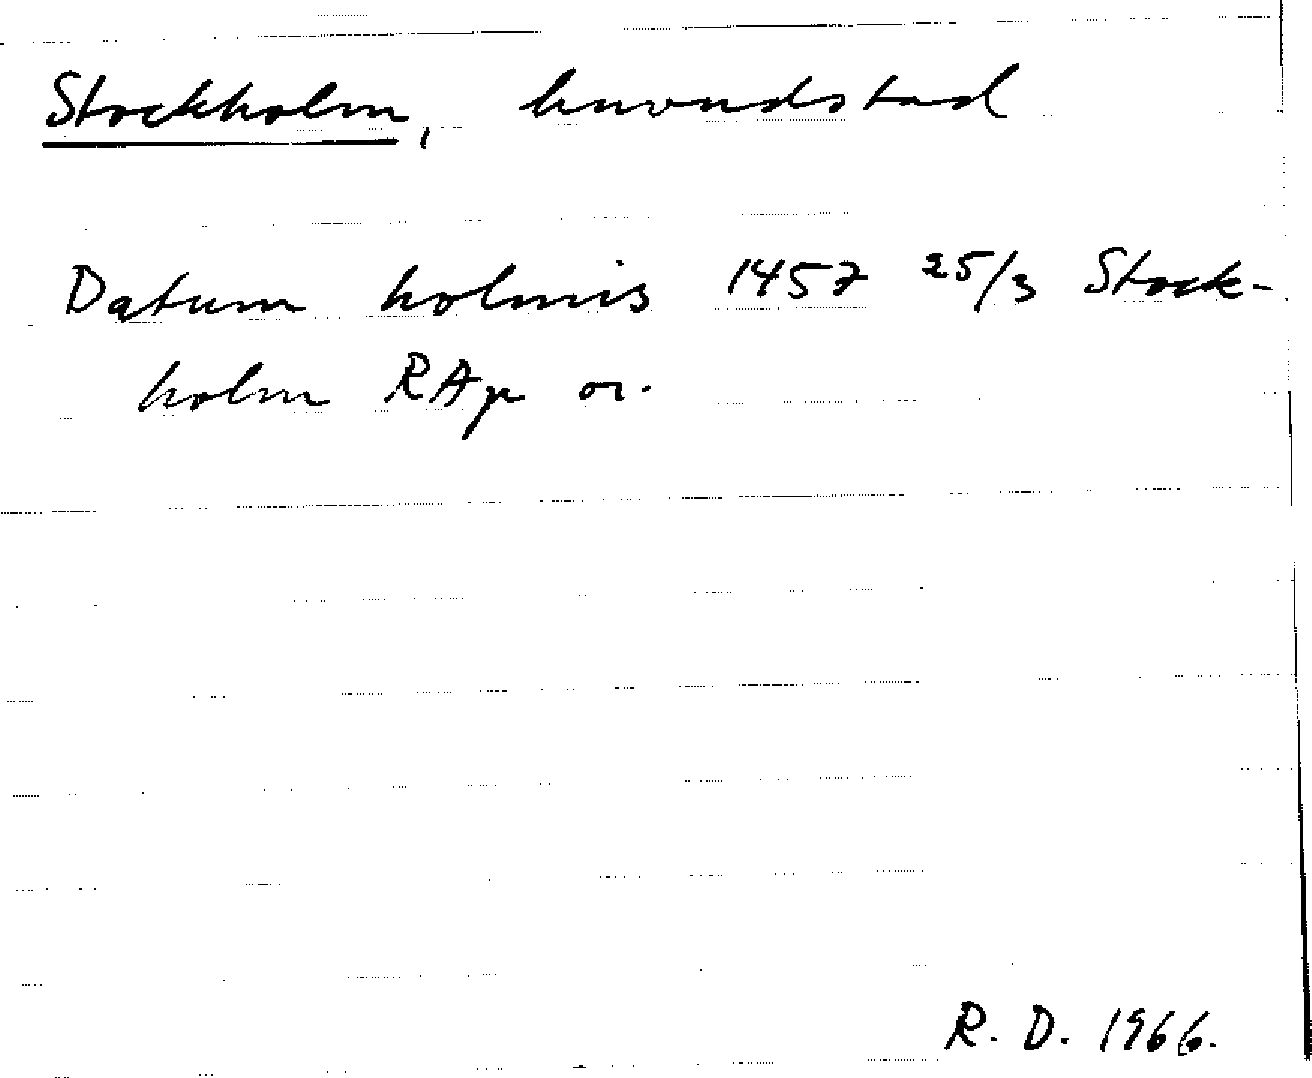 Stockholm, huvudstad
Datum holmis 1457 25/3 Stock-
holm RAp or.
R. D. 1966.